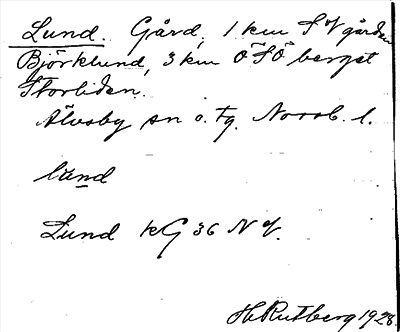 Lund. Gård, 1 km SV gården
Björklund, 3 km ÖSÖ berget
Storliden.
Älvsby sn o. tg. Norrb. l.
lund
Lund kG 36 NV.
H. Rutberg 1928.